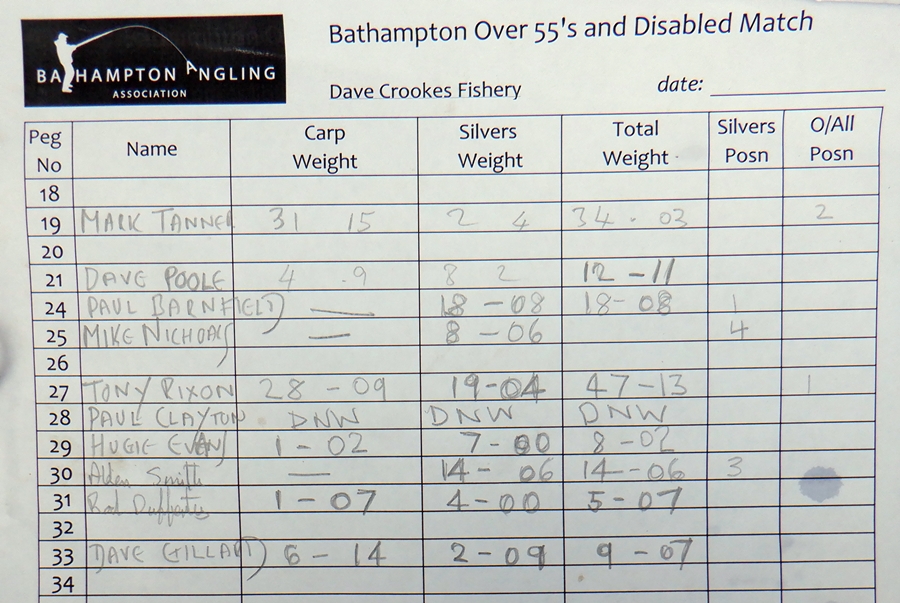 Bathampton Over 55's and Disabled Match
BATHAMPTON ANGLING
ASSOCIATION
Dave Crookes Fishery date:
Peg No Name Carp Weight Silvers Weight Total Weight Silvers Posn O/All Posn
18
19 MARK TANNER 31 15 2 4 34 . 03 2
20
21 DAVE POOLE 4 .9 8 2 12 - 11
24 PAUL BARNFIELD — 18 - 08 18 - 08 1
25 MIKE NICHOALS — 8 - 06 4
26
27 TONY RIXON 28 - 09 19-04 47-13 1
28 PAUL CLAYTON DNW DNW DNW
29 HUGIE EVANS 1 - 02 7 - 00 8 - 02
30 Smith — 14 - 06 14 - 06 3
31 Rod 1 - 07 4 - 00 5 - 07
32
33 DAVE GILLARD 6 - 14 2 - 09 9 - 07
34